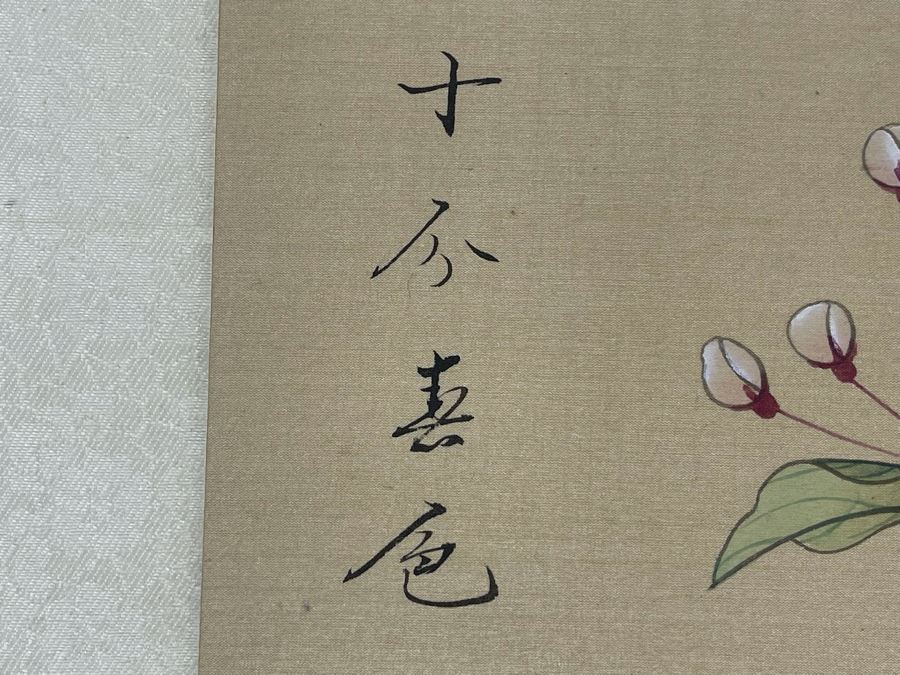 十分春色